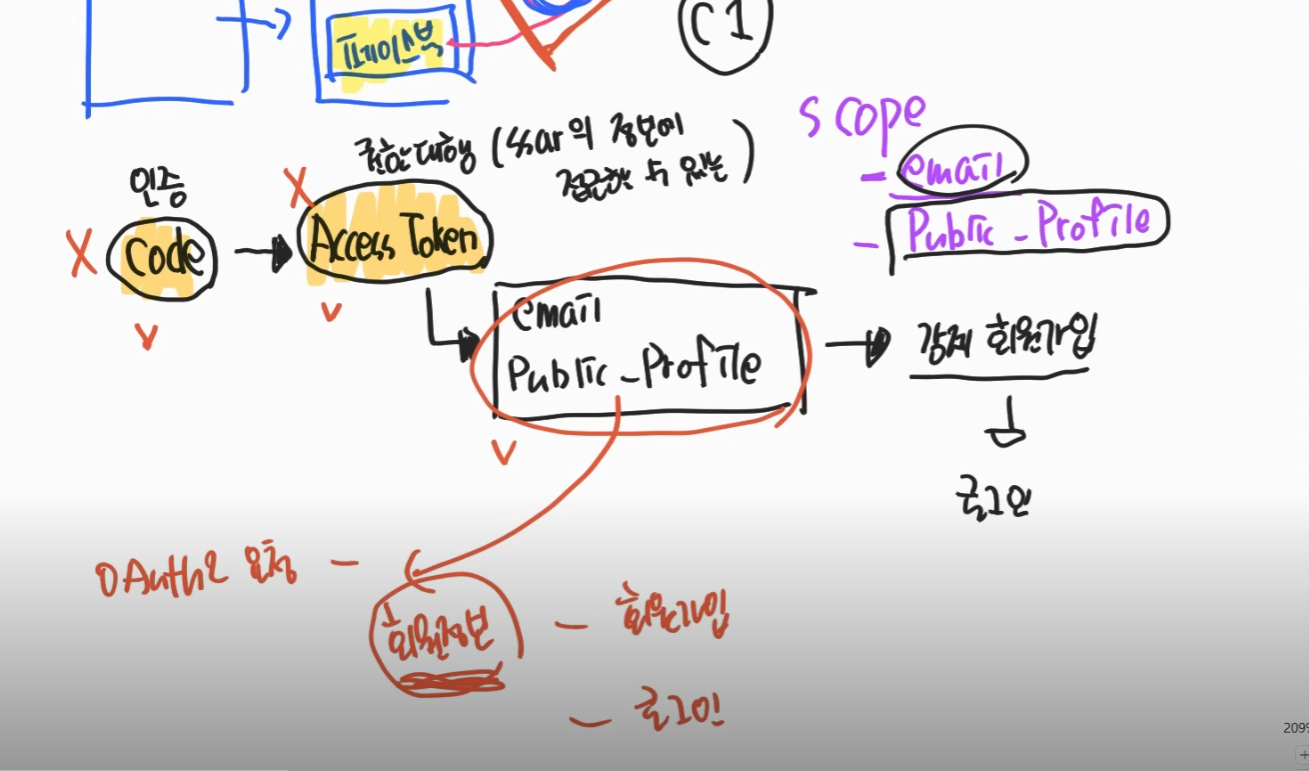 페이스북
C1
scope
- email
- Public_Profile
권한대행 (ssar의 정보에
접근할 수 있는)
인증
X
X
Code
Access Token
v
v
email
Public_Profile
강제 회원가입
v
로그인
OAuth2 요청 -
회원정보
- 회원가입
- 로그인
209%
+